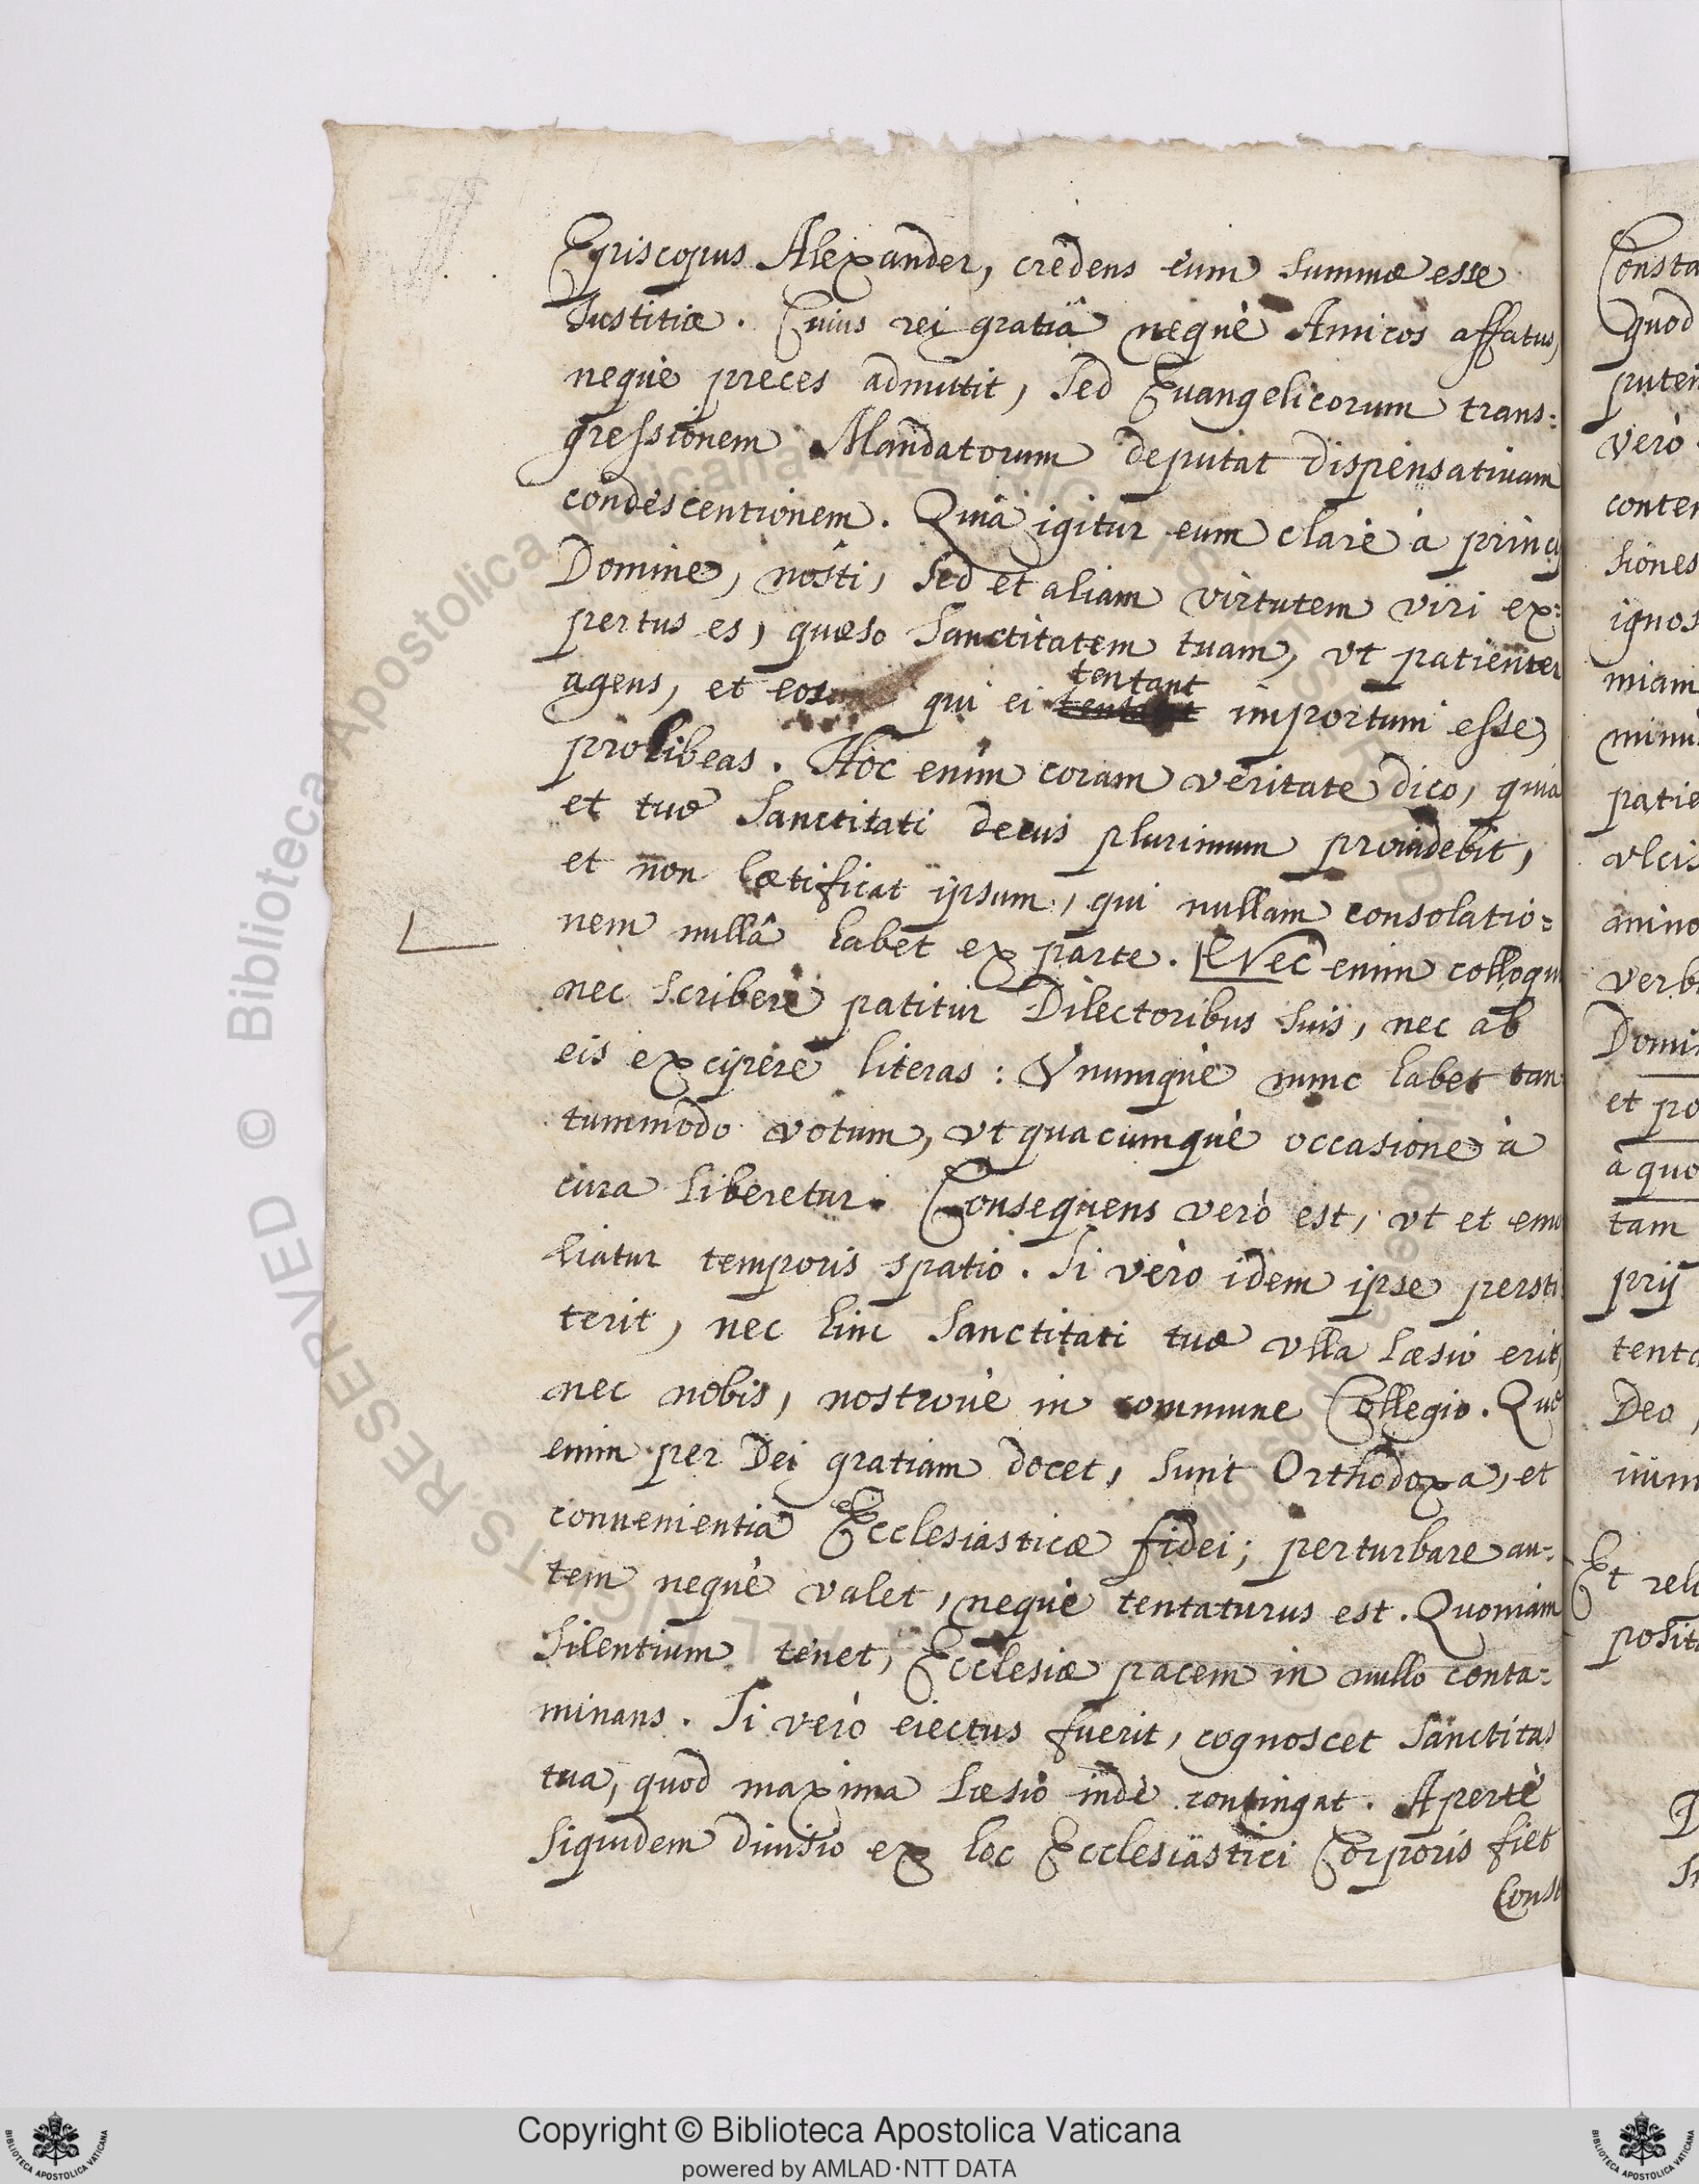 Episcopus Alexander, credens eum summæ esse
Iustitiæ. Cuius rei gratiâ nequè Amicos affatus,
nequè preces admittit, sed Euangelicorum trans:
gressionem Mandatorum deputat dispensatiuam
condescentionem. Quia igitur eum clarè à princ
Domine, nosti, sed et aliam virtutem viri ex:
pertus es, quæso Sanctitatem tuam, vt patienter
agens, et eos qui ei tentant importuni esse,
prohibeas. Hoc enim coram veritate dico, quia
et tuæ Sanctitati decus plurimum prouidebit,
et non lætificat ipsum, qui nullam consolatio:
nem nullâ habet ex parte. Nec enim colloqui
nec scribere patitur Dilectoribus suis, nec ab
eis excipere literas: Vnumquè nunc habet tan
tummodo votum, vt quacumquè occasione à
cura liberetur. Consequens verò est, vt et emo
liatur temporis spatio. Si verò idem ipse persti
terit, nec hinc Sanctitati tuæ vlla læsio erit,
nec nobis, nostroue in commune Collegio. Quæ
enim per Dei gratiam docet, sunt Orthodoxa, et
conuenientia Ecclesiasticæ fidei; perturbare au:
tem nequè valet, nequè tentaturus est. Quoniam
silentium tenet, Ecclesiæ pacem in nullo conta:
minans. Si verò eiectus fuerit, cognoscet Sanctitas
tua, quod maxima læsio indè contingat. Apertè
siquidem diuisio ex hoc Ecclesiastici Corporis fiet
Const
Consta
quod
putem
verò
conter
siones
ignos
miam
minu
patie
vlcis
animo
verb
Domi
et po
à quo
tam
prij
tenta
Deo,
Et reli
posit
Copyright © Biblioteca Apostolica Vaticana
powered by AMLAD·NTT DATA